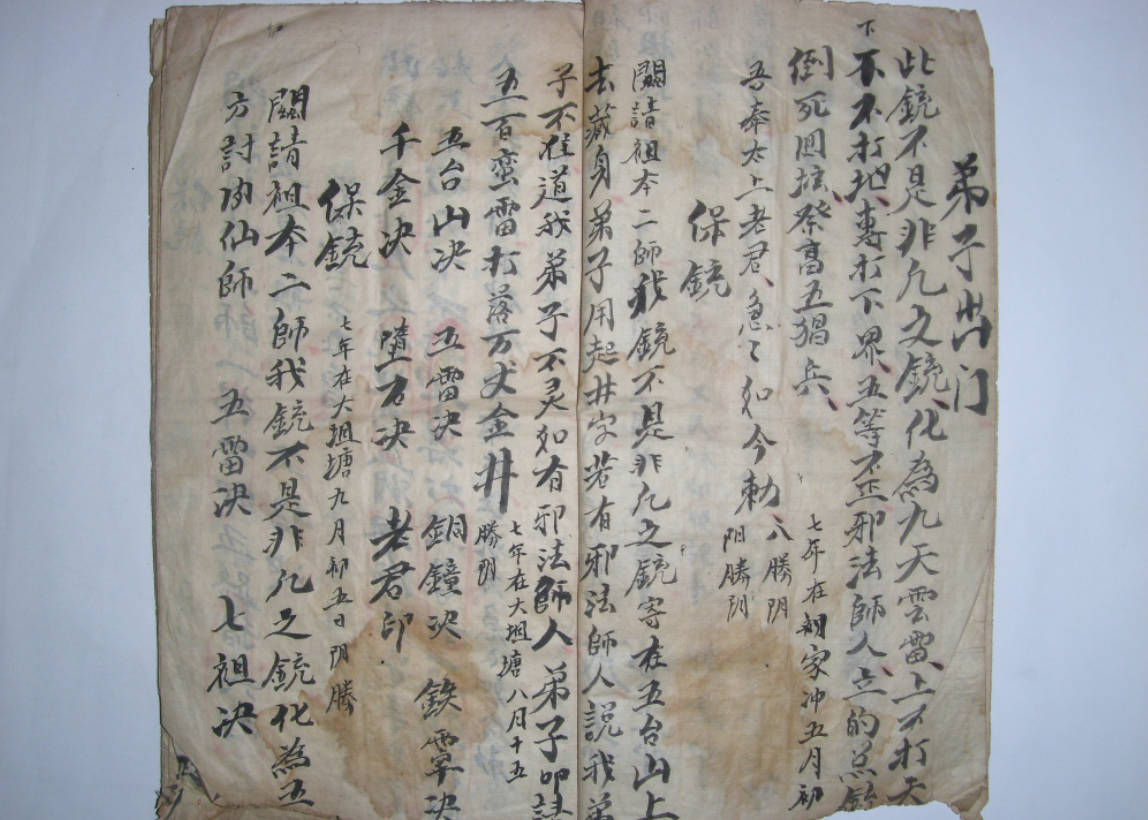 弟子出门
此鏡不是非凡之鏡化為九天雲雷上不打天
下不打地專打下界五等不正邪法師人立的
倒死回坛祭高五猖兵
七年在 家冲五月初
吾奉太上老君急々如今勅
八勝阴
阳勝阴
保鏡
闗請祖本二師我鏡不是非凡之鏡寄在五台山上
去藏身弟子用起井字若有邪法師人説我弟
子不准道我弟子不灵如有邪法師人弟子叩請
七年在大坦塘八月十五
五百蛮雷打落万丈金井
勝阴
五台山决 五雷决 銅鐘决 鉄 决
千金决 墮石决 老君印
保鏡
七年在大坦塘九月初五日阴勝
闗請祖本二師我鏡不是非凡之鏡化為五
方討 仙師 五雷决 七祖决